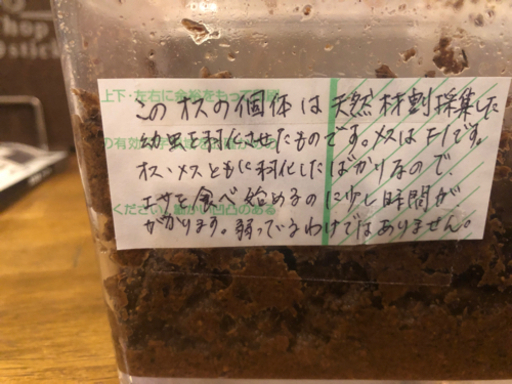 hop
stick
上下・左右に余裕をもって
このオスの個体は天然材割採集した
幼虫を羽化させたものです。メスはF1です。
オス・メスともに羽化したばかりなので、
エサを食べ始めるのに少し時間が
ください
凹凸のある
かかります。弱っているわけではありません。